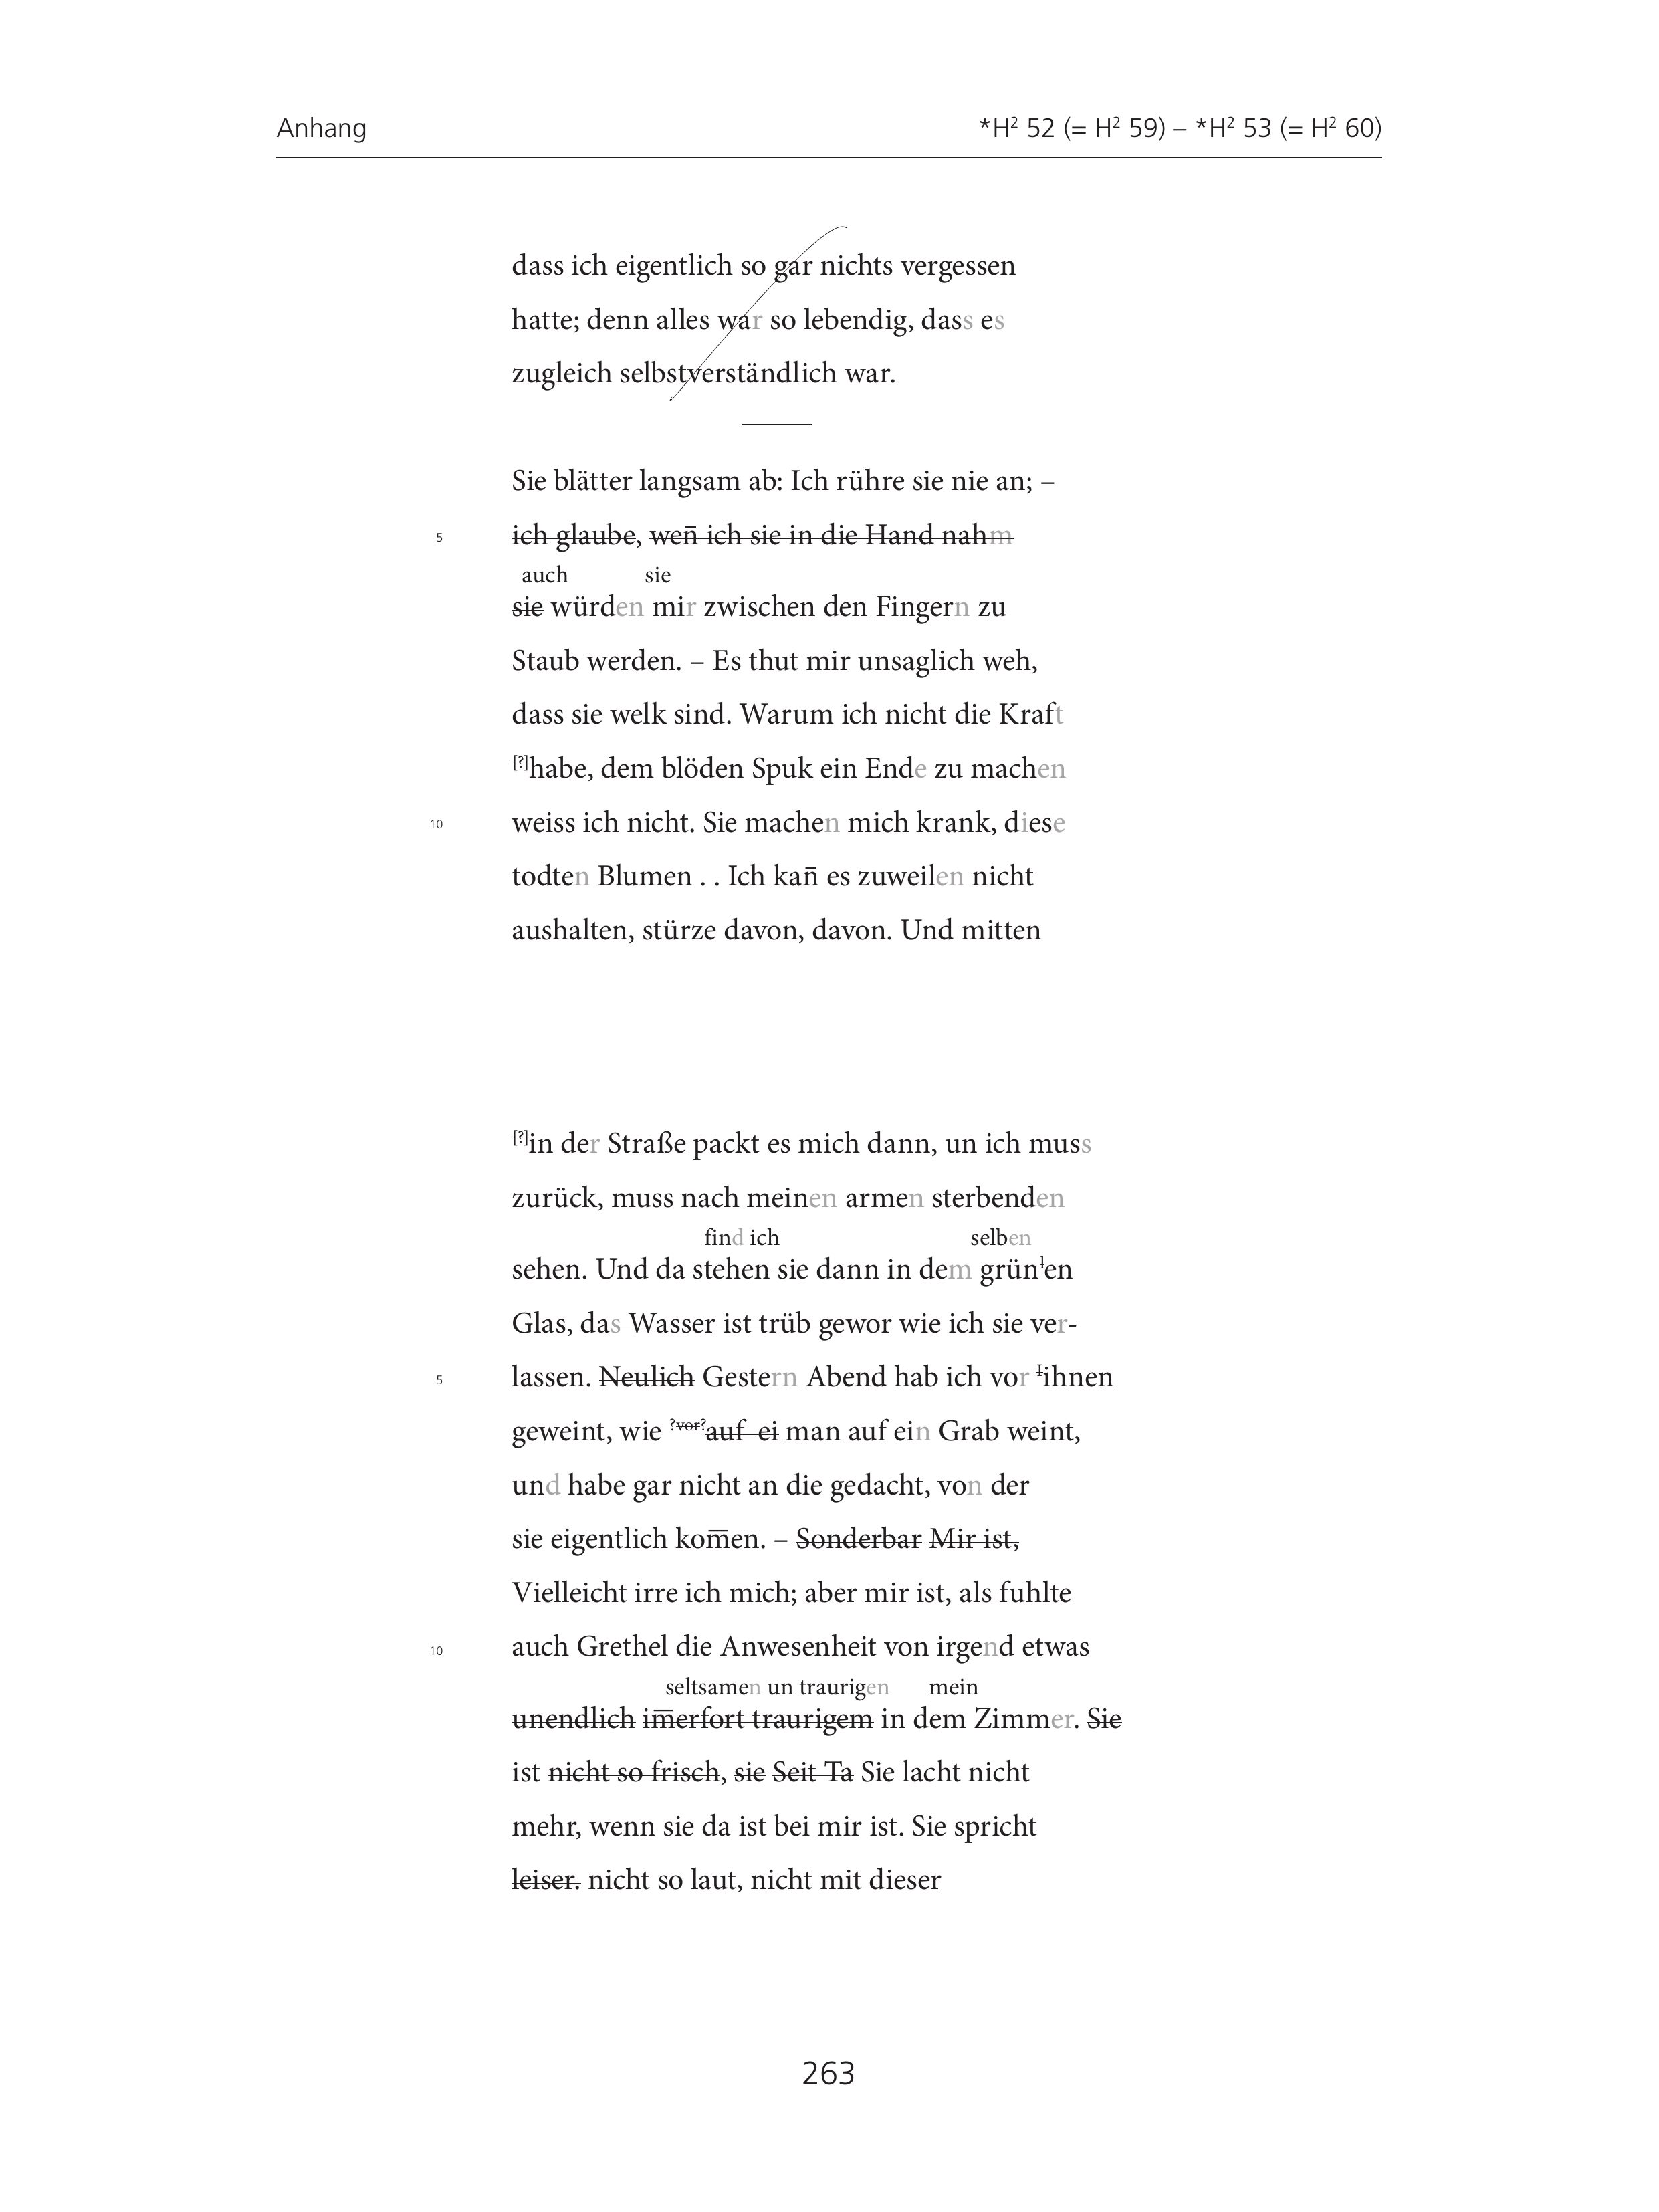 Anhang
*H² 52 (= H² 59) – *H² 53 (= H² 60)
dass ich eigentlich so gar nichts vergessen
hatte; denn alles war so lebendig, dass es
zugleich selbstverständlich war.
Sie blätter langsam ab: Ich rühre sie nie an; –
5 ich glaube, wen̅ ich sie in die Hand nahm
auch sie
sie würden mir zwischen den Fingern zu
Staub werden. – Es thut mir unsaglich weh,
dass sie welk sind. Warum ich nicht die Kraft
[?]habe, dem blöden Spuk ein Ende zu machen
10 weiss ich nicht. Sie machen mich krank, diese
todten Blumen . . Ich kan̅ es zuweilen nicht
aushalten, stürze davon, davon. Und mitten
[?]in der Straße packt es mich dann, un ich muss
zurück, muss nach meinen armen sterbenden
find ich selben
sehen. Und da stehen sie dann in dem grünlen
Glas, das Wasser ist trüb gewor wie ich sie ver-
5 lassen. Neulich Gestern Abend hab ich vor Iihnen
geweint, wie ?vor?auf ei man auf ein Grab weint,
und habe gar nicht an die gedacht, von der
sie eigentlich kom̅en. – Sonderbar Mir ist,
Vielleicht irre ich mich; aber mir ist, als fuhlte
10 auch Grethel die Anwesenheit von irgend etwas
seltsamen un traurigen mein
unendlich im̅erfort traurigem in dem Zimmer. Sie
ist nicht so frisch, sie Seit Ta Sie lacht nicht
mehr, wenn sie da ist bei mir ist. Sie spricht
leiser. nicht so laut, nicht mit dieser
263